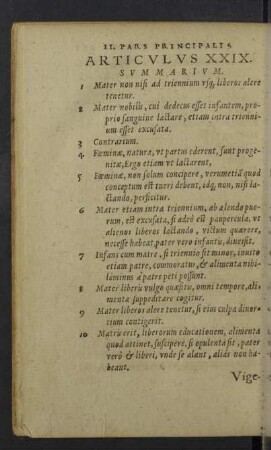 II. PARS PRINCIPALIS.
ARTICVLVS XXIX.
SVMMARIVM.
1 Mater non nisi ad triennium vsq; liberos alere
tenetur.
2 Mater nobilis, cui dedecus esset infantem, pro-
prio sanguine lactare, etiam intra trienni-
um esset excusata.
3 Contrarium.
4 Fœminæ, natura, vt partus ederent, sunt proge-
nitæ, Ergo etiam vt lactarent,
5 Fœminæ, non solum concipere, verumetiã quod
conceptum est tueri debent, idq; non, nisi la-
ctando, perficitur.
6 Mater etiam intra triennium, ab alendo pue-
rum, est excusata, si adeò est paupercula, vt
alienos liberos lactando, victum quærere,
necesse habeat, pater verò infantis, diues sit.
7 Infans cum matre, si triennio sit minor, inuito
etiam patre, commoratur, & alimenta nihi-
lominus à patre peti possunt.
8 Mater liberis vulgo quæsitis, omni tempore, ali-
menta suppeditare cogitur.
9 Mater liberos alere tenetur, si eius culpa diuor-
tium contigerit.
10 Matris erit, liberorum educationem, alimenta
quod attinet, suscipere, si opulenta sit, pater
verò & liberi, vnde se alant, aliàs non ha-
beant.
Vige-